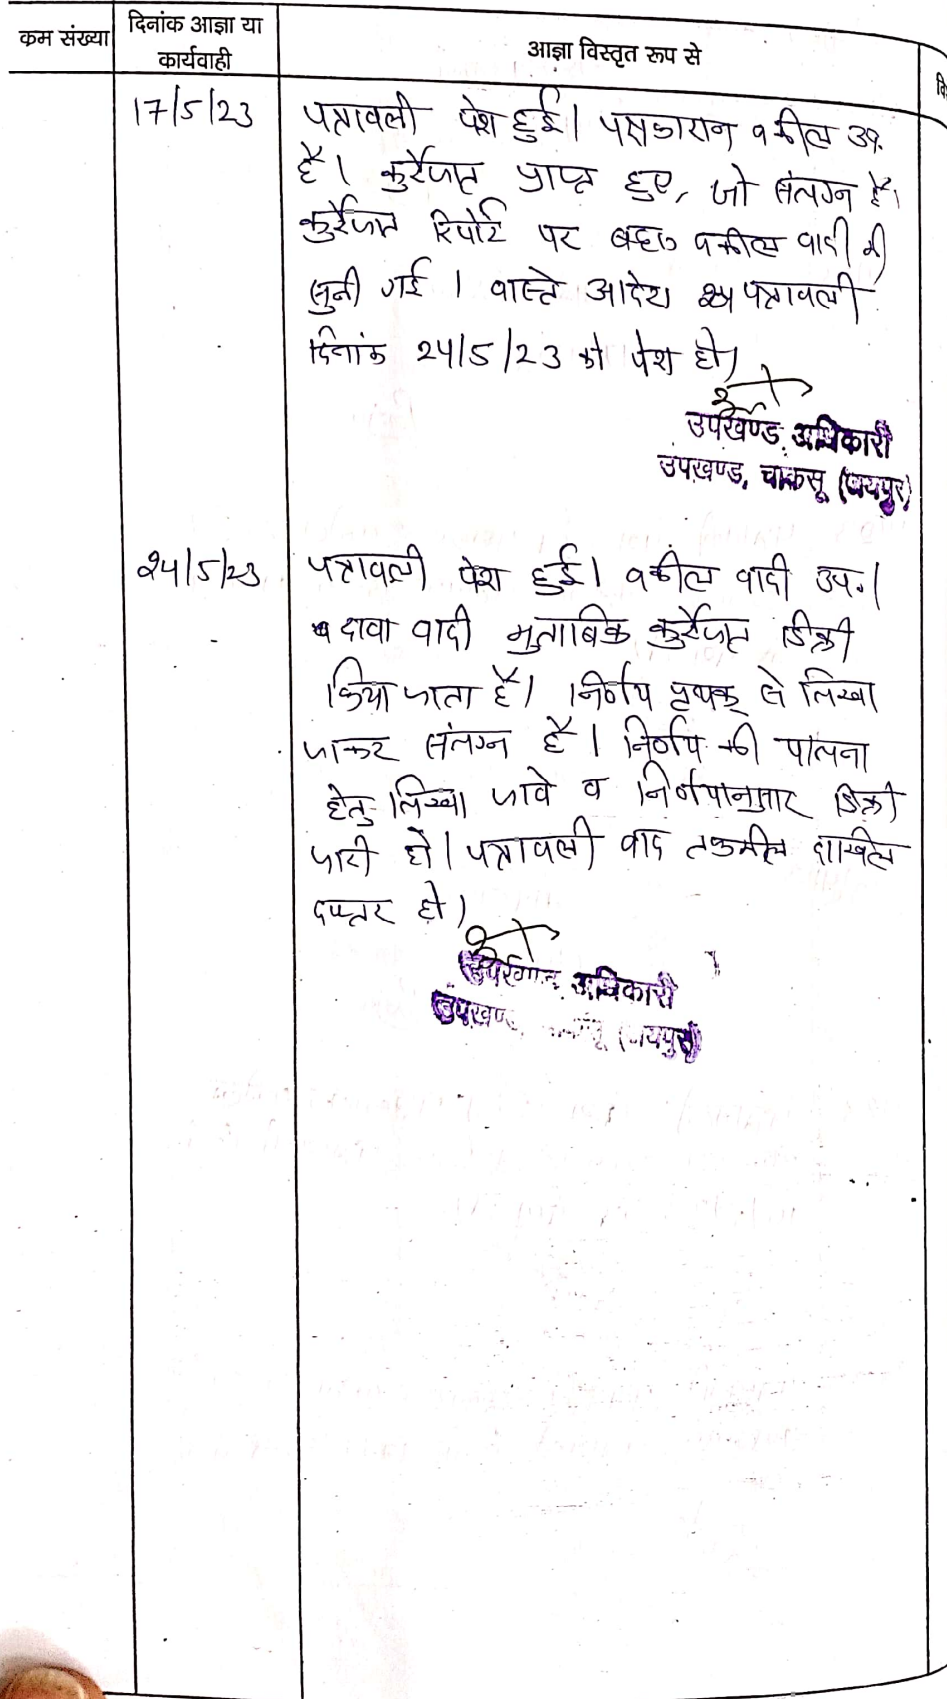 कम संख्या
दिनांक आज्ञा या
कार्यवाही
आज्ञा विस्तृत रूप से
वि
17/5/23
पत्रावली पेश हुई। पक्षकारान वकील उप.
है। कुर्रेजात प्राप्त हुए, जो संलग्न है।
कुर्रेजात रिपोर्ट पर बहस वकील वादी की
सुनी गई। वास्ते आदेश पत्रावली
दिनांक 24/5/23 को पेश हो।
उपखण्ड अधिकारी
उपखण्ड, चाकसू (जयपुर)
24/5/23
पत्रावली पेश हुई। वकील वादी उप.।
दावा वादी मुताबिक कुर्रेजात डिक्री
किया जाता है। निर्णय पृथक् से लिखा
जाकर संलग्न है। निर्णय की पालना
हेतु लिखा जावे व निर्णयानुसार डिक्री
जारी हो। पत्रावली बाद तकमील दाखिल
दफ्तर हो।
अधिकारी
उपखण्ड (जयपुर)